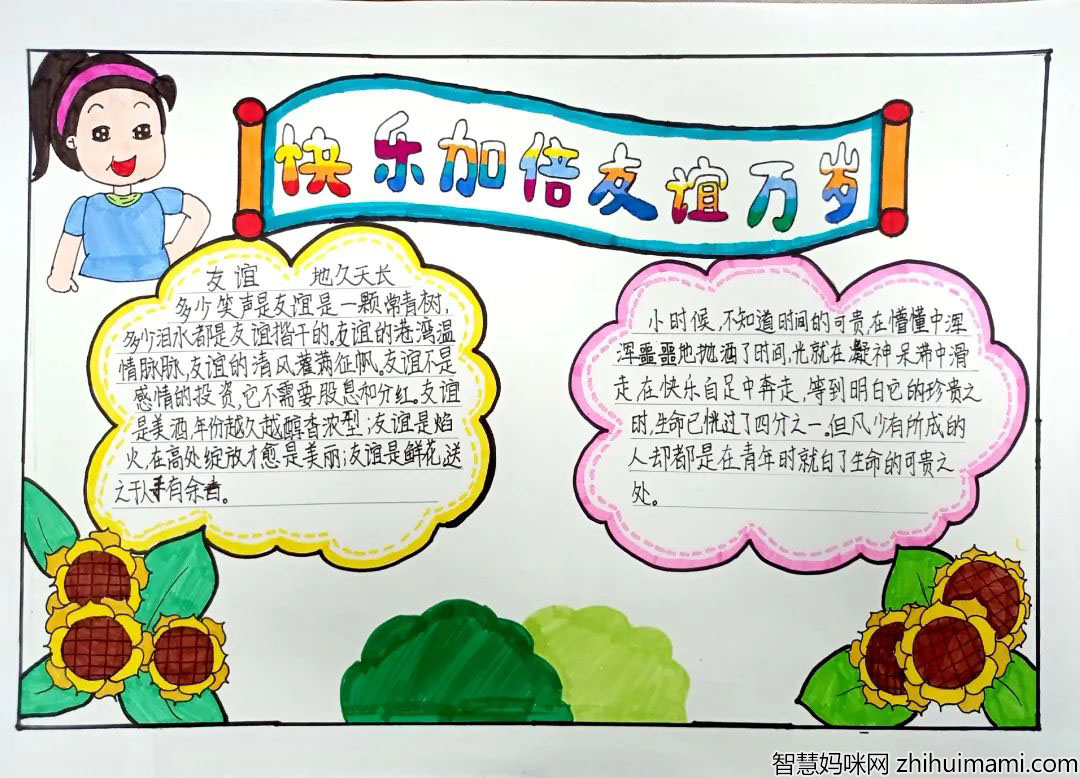 快乐加倍友谊万岁
友谊 地久天长
多少笑声是友谊是一颗常青树,
多少泪水都是友谊揩干的。友谊的港湾温
情脉脉,友谊的清风灌满征帆。友谊不是
感情的投资,它不需要股息和分红。友谊
是美酒,年份越久越醇香浓型;友谊是焰
火,在高处绽放才愈是美丽;友谊是鲜花,送
之于人手有余香。
小时候,不知道时间的可贵,在懵懂中浑
浑噩噩地抛洒了时间,光就在凝神呆滞中滑
走,在快乐自足中奔走,等到明白它的珍贵之
时,生命已恍过了四分之一。但凡少有所成的
人却都是在青年时就白了生命的可贵之
处。
智慧妈咪网 zhihuimami.com